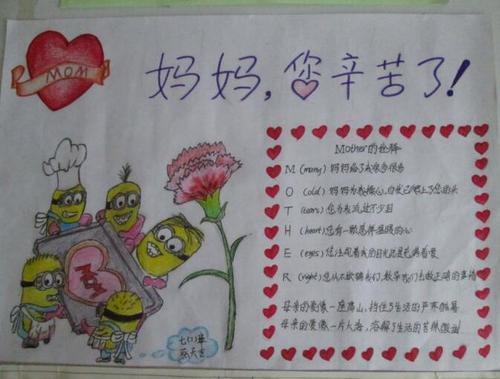 MOM
妈妈,您辛苦了!
Mother的诠释
M (many) 妈妈给了我很多很多
O (old) 妈妈为我操心,白发已爬上了您的头
T (tears) 您为我流过不少泪
H (heart) 您有一颗慈祥温暖的心
E (eyes) 您注视着我的目光总是充满着爱
R (right) 您从不欺骗我们,教导我们去做正确的事情
母亲的爱像一座高山,挡住了生活的严寒
母亲的爱像一片大海,溶解了生活的苦
MOM